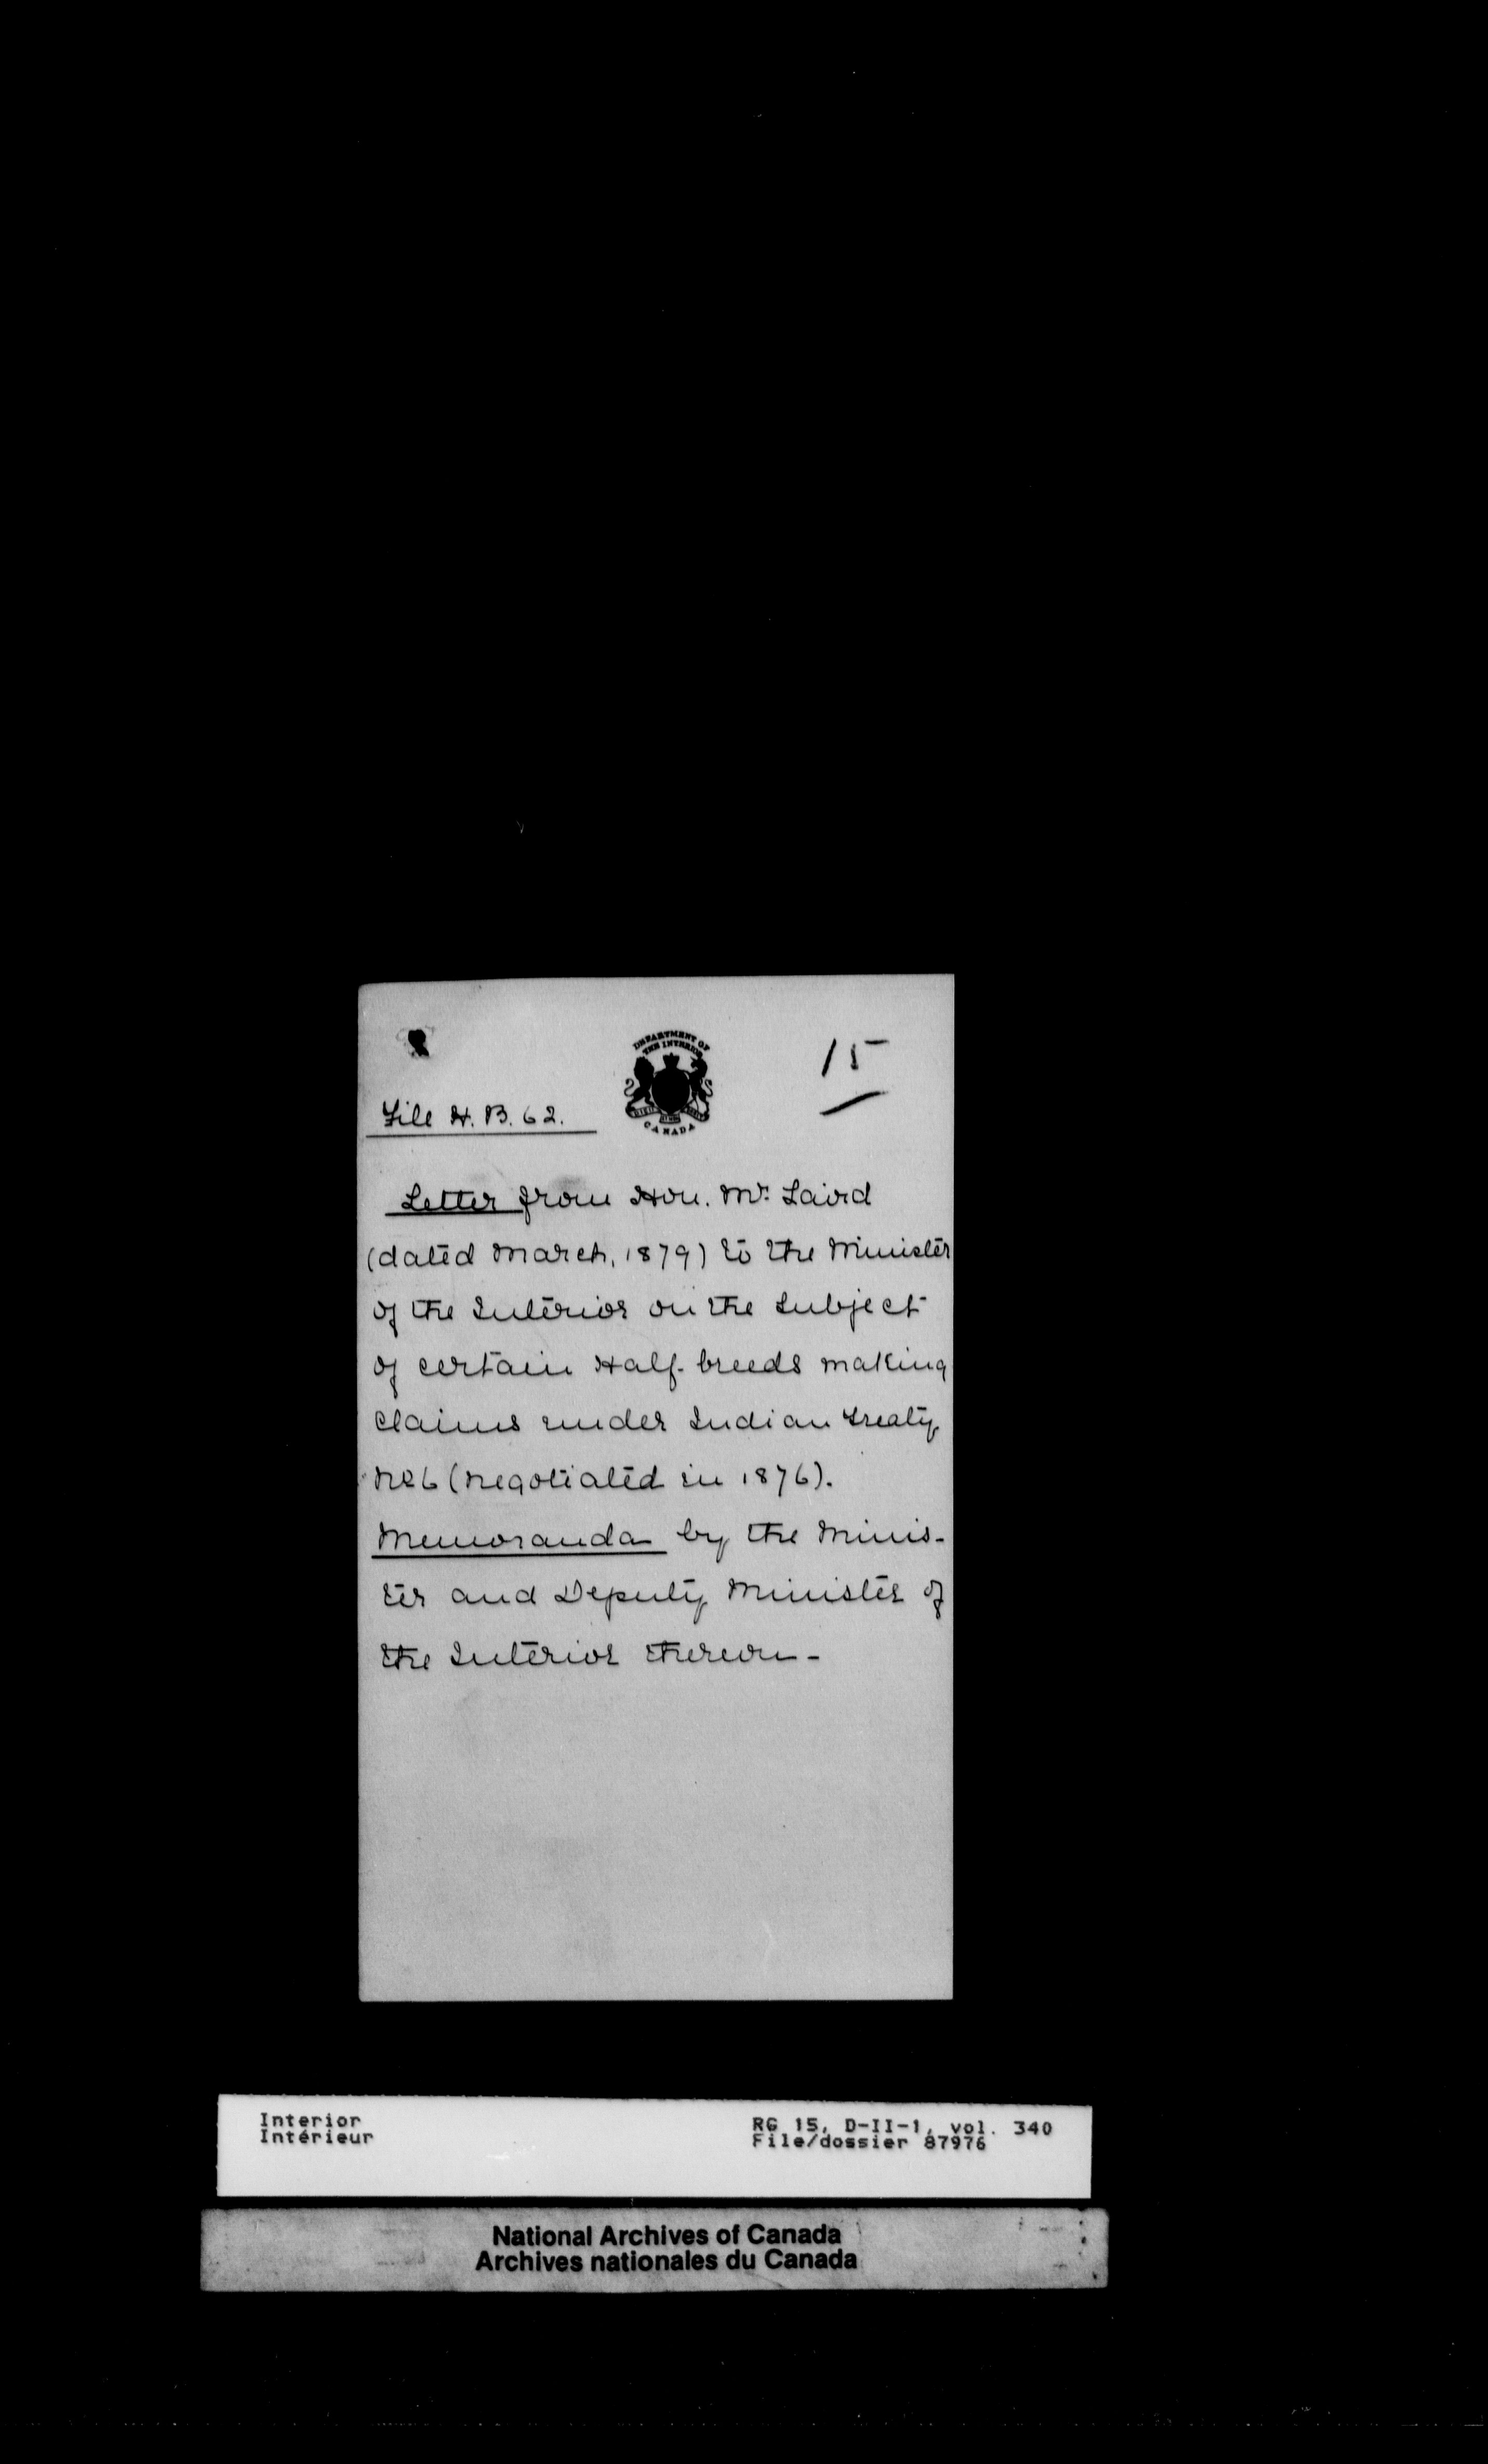 DEPARTMENT OF
THE INTERIOR
CANADA
15
File H.B. 62.
Letter from Hon. Mr. Laird
(dated March, 1879) to the Minister
of the Interior on the subject
of certain Half-breeds making
claims under Indian Treaty
No 6 (negotiated in 1876).
Memoranda by the Minis-
ter and Deputy Minister of
the Interior thereon -
Interior
Intérieur
RG 15, D-II-1, vol. 340
File/dossier 87976
National Archives of Canada
Archives nationales du Canada